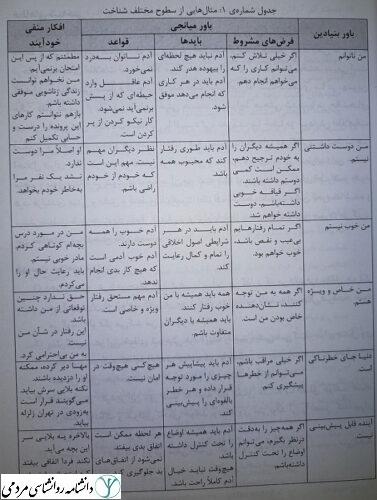 جدول شماره‌ی ۱: مثال‌هایی از سطوح مختلف شناخت
باور بنیادین
باور میانجی
افکار منفی
خودآیند
فرض‌های مشروط
بایدها
قواعد
من ناتوانم
اگر خیلی تلاش کنم،
می‌توانم کاری را که
می‌خواهم انجام دهم.
آدم نباید هیچ لحظه‌ای
را بیهوده هدر کند.
آدم باید در هر کاری
که انجام می‌دهد موفق
شود
آدم ناتوان به‌درد
نمی‌خورد.
آدم عاقل وارد
حیطه‌ای که از پسش
برنمی‌آید نمی‌شود.
کار نیکو کردن از پر
کردن است.
مطمئنم که از پس این
امتحان برنمی‌آیم.
من نخواهم توانست
زندگی زناشویی موفقی
داشته باشم.
بازهم نتوانستم کارهای
این پرونده را درست و
حسابی تکمیل کنم
من دوست داشتنی
نیستم
اگر همیشه دیگران را
به خودم ترجیح دهم،
ممکن است کمی
دوستم داشته باشند.
اگر قیافه خوبی
داشته‌باشم، دوست
داشته خواهم شد.
آدم باید طوری رفتار
کند که محبوب همه
باشد.
نظر دیگران مهم
نیست. مهم این است
که خودم از خودم
راضی باشم.
او اصلاً مرا دوست
ندارد.
نشد یک نفر مرا
به‌خاطر خودم بخواهد.
من خوب نیستم
اگر تمام رفتارهایم
بی‌عیب و نقص باشد،
خوب خواهم بود.
آدم باید در هر
شرایطی اصول اخلاقی
را تمام و کمال رعایت
کند.
آدم خوب را همه
دوست دارند.
آدم خوب آدمی است
که هیچ کار بدی انجام
ندهد.
من در مورد درس
بچه‌ام کوتاهی کردم.
مادر خوبی نیستم.
باید رعایت حال او را
می‌کردم.
من خاص و ویژه
هستم.
اگر همه به من توجه
کنند، نشان‌دهنده
خاص بودن من است.
همه باید همیشه با من
خوب رفتار کنند.
من باید همیشه با دیگران
متفاوت باشم.
آدم مهم مستحق رفتار
ویژه و خاصی است.
حق ندارد چنین
توقعاتی از من داشته
باشد.
این رفتار در شأن من
نیست.
به من بی‌احترامی کرد.
دنیا جای خطرناکی
است
اگر خیلی مراقب باشم،
می‌توانم از خطرها
پیشگیری کنم
آدم باید پیشاپیش هر
چیزی را مورد توجه
قرار داده و هر خطر
بالقوه‌ای را پیش‌بینی
کند.
هیچ‌کس هیچ‌وقت در
امان نیست.
مها دیر کرده، ممکنه
او را دزدیده باشند.
نکنه بلایی سرش بیاد.
می‌گویند قرار است
به‌زودی در تهران زلزله
بیاید
آینده قابل پیش‌بینی
نیست.
اگر همه‌چیز را به‌دقت
درنظر بگیرم، می‌توانم
اوضاع را تحت کنترل
داشته‌باشم.
آدم باید همیشه اوضاع
را تحت کنترل داشته
باشد.
هیچ‌وقت نباید خیال
آدم کاملاً راحت باشد.
هر لحظه ممکن است
اتفاق بدی بیفتد.
نمی‌شود از اتفاق‌های
بد جلوگیری کرد.
بالاخره یه بلایی سر
این بچه می‌آید.
نکند فردا اتفاقی بیفتد
دانشنامه روانشناسی مردمی